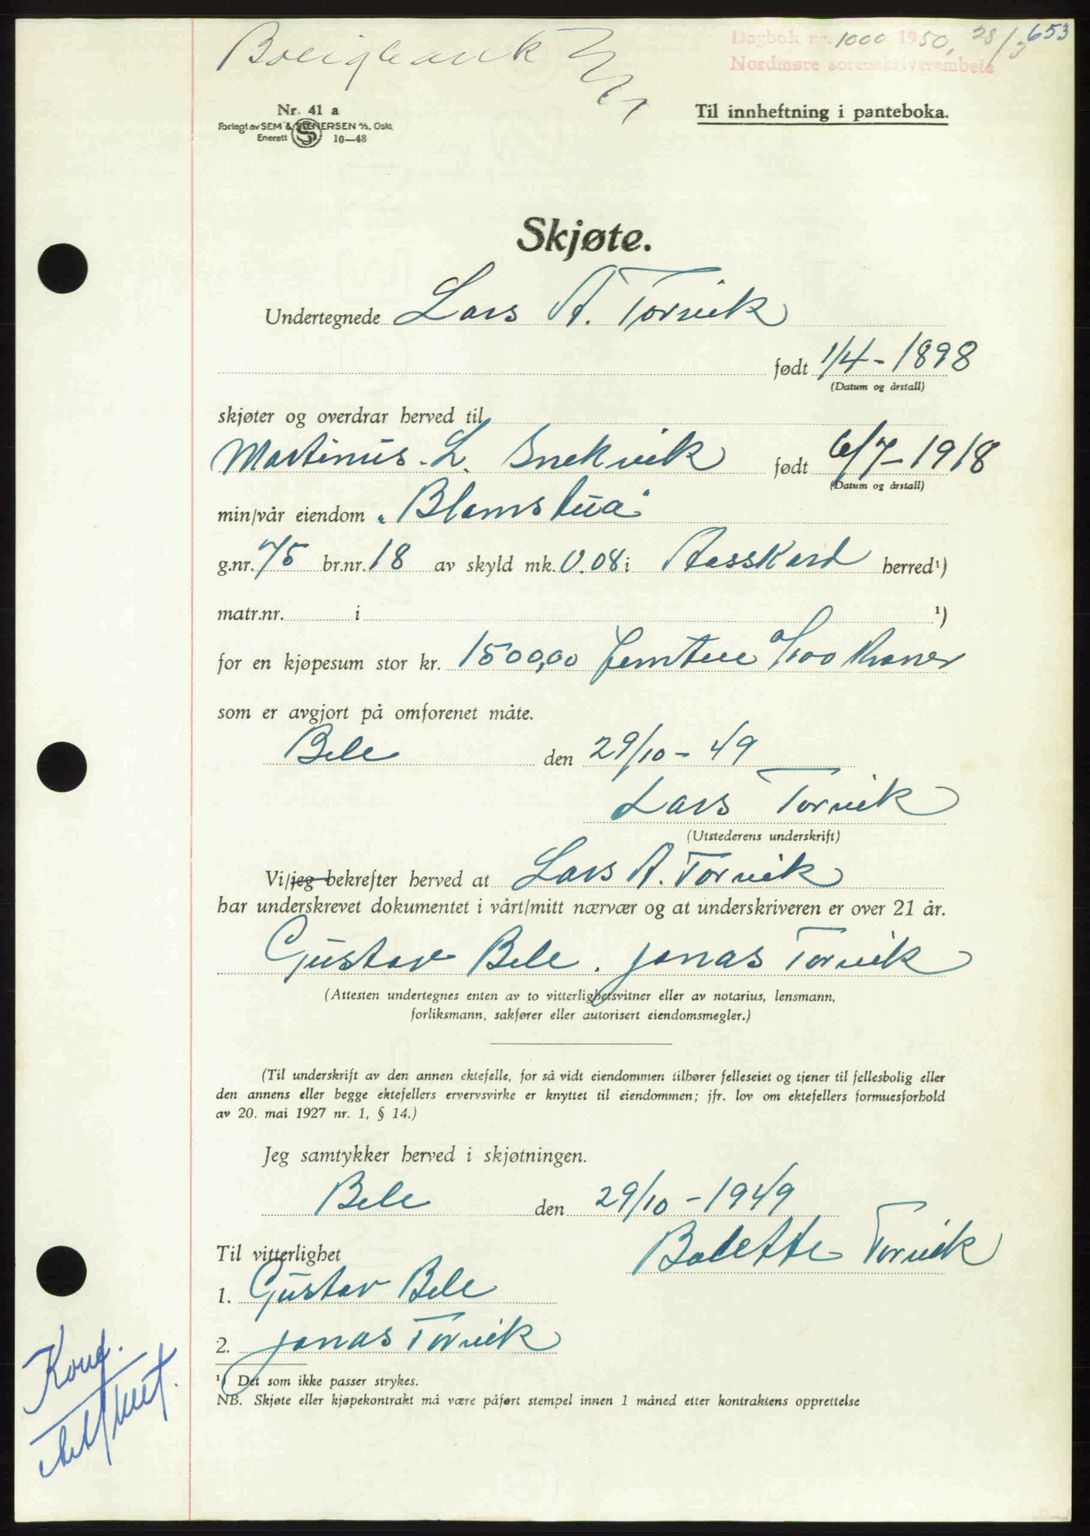 653
Dagbok nr. 1000 1950, 28/3
Nordmøre sorenskriverembete
Boligbank
Nr. 41 a
Forlagt av SEM & STENERSEN A/S, Oslo
Enerett 10—48
Til innheftning i panteboka.
Skjøte.
Undertegnede Lars A. Torvik
født 1/4 - 1898
(Datum og årstall)
skjøter og overdrar herved til
Martinus L. Snekvik født 6/7 - 1918
(Datum og årstall)
min/vår eiendom "Blomstua"
g.nr. 75 br.nr. 18 av skyld mk. 0.08 i Aasskard herred¹)
matr.nr. i ¹)
for en kjøpesum stor kr. 1500,00 femten 0/100 Kroner
som er avgjort på omforenet måte.
Bele den 29/10 - 49
Lars Torvik
(Utstederens underskrift)
Vi/jeg bekrefter herved at Lars A. Torvik
har underskrevet dokumentet i vårt/mitt nærvær og at underskriveren er over 21 år.
Gustav Bele. Jonas Torvik
(Attesten undertegnes enten av to vitterlighetsvitner eller av notarius, lensmann,
forliksmann, sakfører eller autorisert eiendomsmegler.)
(Til underskrift av den annen ektefelle, for så vidt eiendommen tilhører felleseiet og tjener til fellesbolig eller
den annens eller begge ektefellers ervervsvirke er knyttet til eiendommen; jfr. lov om ektefellers formuesforhold
av 20. mai 1927 nr. 1, § 14.)
Jeg samtykker herved i skjøtningen.
Bele den 29/10 - 1949
Bolette Torvik
Til vitterlighet
1. Gustav Bele
2. Jonas Torvik
¹) Det som ikke passer strykes.
NB. Skjøte eller kjøpekontrakt må være påført stempel innen 1 måned etter kontraktens opprettelse